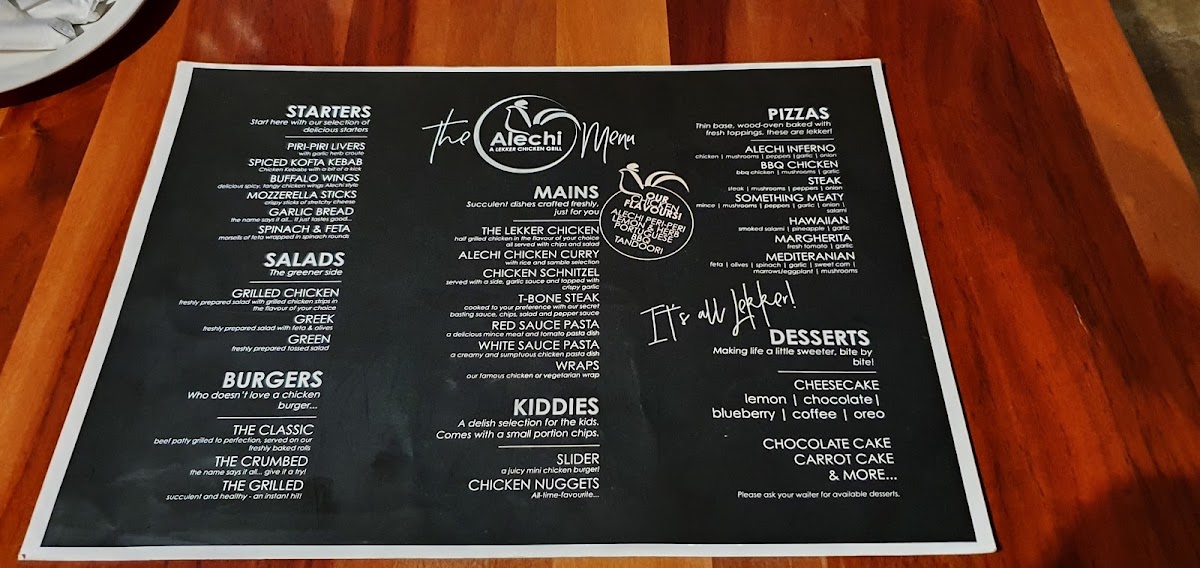 STARTERS
Start here with our selection of
delicious starters
PIRI-PIRI LIVERS
with garlic herb croute
SPICED KOFTA KEBAB
Chicken Kebabs with a bit of a kick
BUFFALO WINGS
delicious spicy, tangy chicken wings Alechi style
MOZZERELLA STICKS
crispy sticks of stretchy cheese
GARLIC BREAD
the name says it all... it just tastes good...
SPINACH & FETA
morsells of feta wrapped in spinach rounds
SALADS
The greener side
GRILLED CHICKEN
freshly prepared salad with grilled chicken strips in
the flavour of your choice
GREEK
freshly prepared salad with feta & olives
GREEN
freshly prepared tossed salad
BURGERS
Who doesn't love a chicken
burger...
THE CLASSIC
beef patty grilled to perfection, served on our
freshly baked rolls
THE CRUMBED
the name says it all... give it a try!
THE GRILLED
succulent and healthy - an instant hit!
The
Alechi
A LEKKER CHICKEN GRILL
Menu
MAINS
Succulent dishes crafted freshly,
just for you
THE LEKKER CHICKEN
half grilled chicken in the flavour of your choice
all served with chips and salad
ALECHI CHICKEN CURRY
with rice and samble selection
CHICKEN SCHNITZEL
served with a side, garlic sauce and topped with
crispy garlic
T-BONE STEAK
cooked to your preference with our secret
basting sauce, chips, salad and pepper sauce
RED SAUCE PASTA
a delicious mince meat and tomato pasta dish
WHITE SAUCE PASTA
a creamy and sumptuous chicken pasta dish
WRAPS
our famous chicken or vegetarian wrap
KIDDIES
A delish selection for the kids.
Comes with a small portion chips.
SLIDER
a juicy mini chicken burger!
CHICKEN NUGGETS
All-time-favourite...
OUR
CHICKEN
FLAVOURS!
ALECHI PERI-PERI
LEMON & HERB
PORTUGUESE
BBQ
TANDOORI
PIZZAS
Thin base, wood-oven baked with
fresh toppings, these are lekker!
ALECHI INFERNO
chicken | mushrooms | peppers |garlic | onion
BBQ CHICKEN
bbq chicken | mushrooms | garlic
STEAK
steak | mushrooms | peppers | onion
SOMETHING MEATY
mince | mushrooms | peppers | garlic | onion |
salami
HAWAIIAN
smoked salami | pineapple | garlic
MARGHERITA
fresh tomato | garlic
MEDITERANIAN
feta | olives | spinach | garlic | sweet corn |
marrows/eggplant | mushrooms
It's all lekker!
DESSERTS
Making life a little sweeter, bite by
bite!
CHEESECAKE
lemon | chocolate|
blueberry | coffee | oreo
CHOCOLATE CAKE
CARROT CAKE
& MORE...
Please ask your waiter for available desserts.